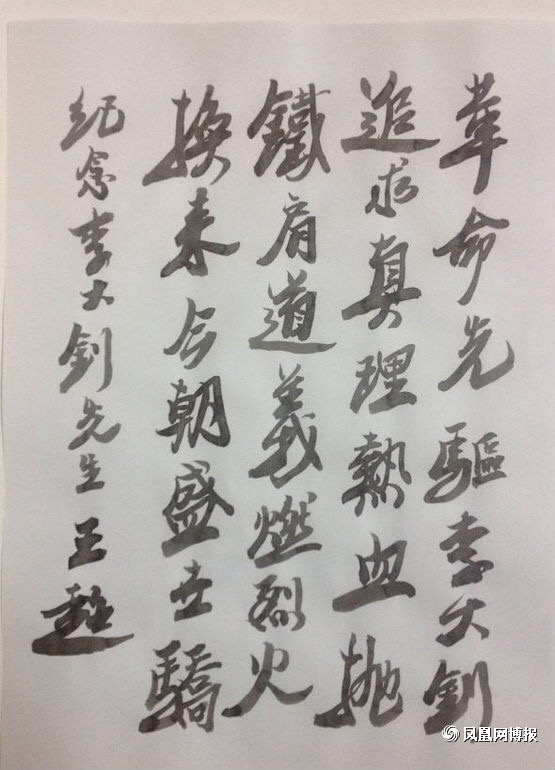 革命先驅李大釗
追求真理熱血拋
鐵肩道義燃烈火
換來今朝盛世驕
纪念李大釗先生 王超
凤凰网博报